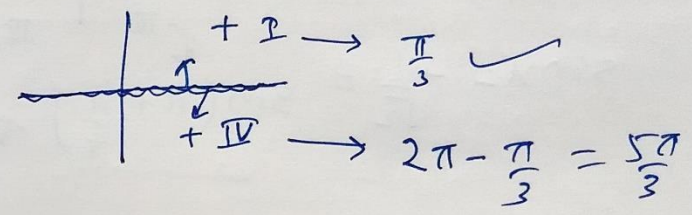 + I → π/3 ✓
+ IV → 2π - π/3 = 5π/3